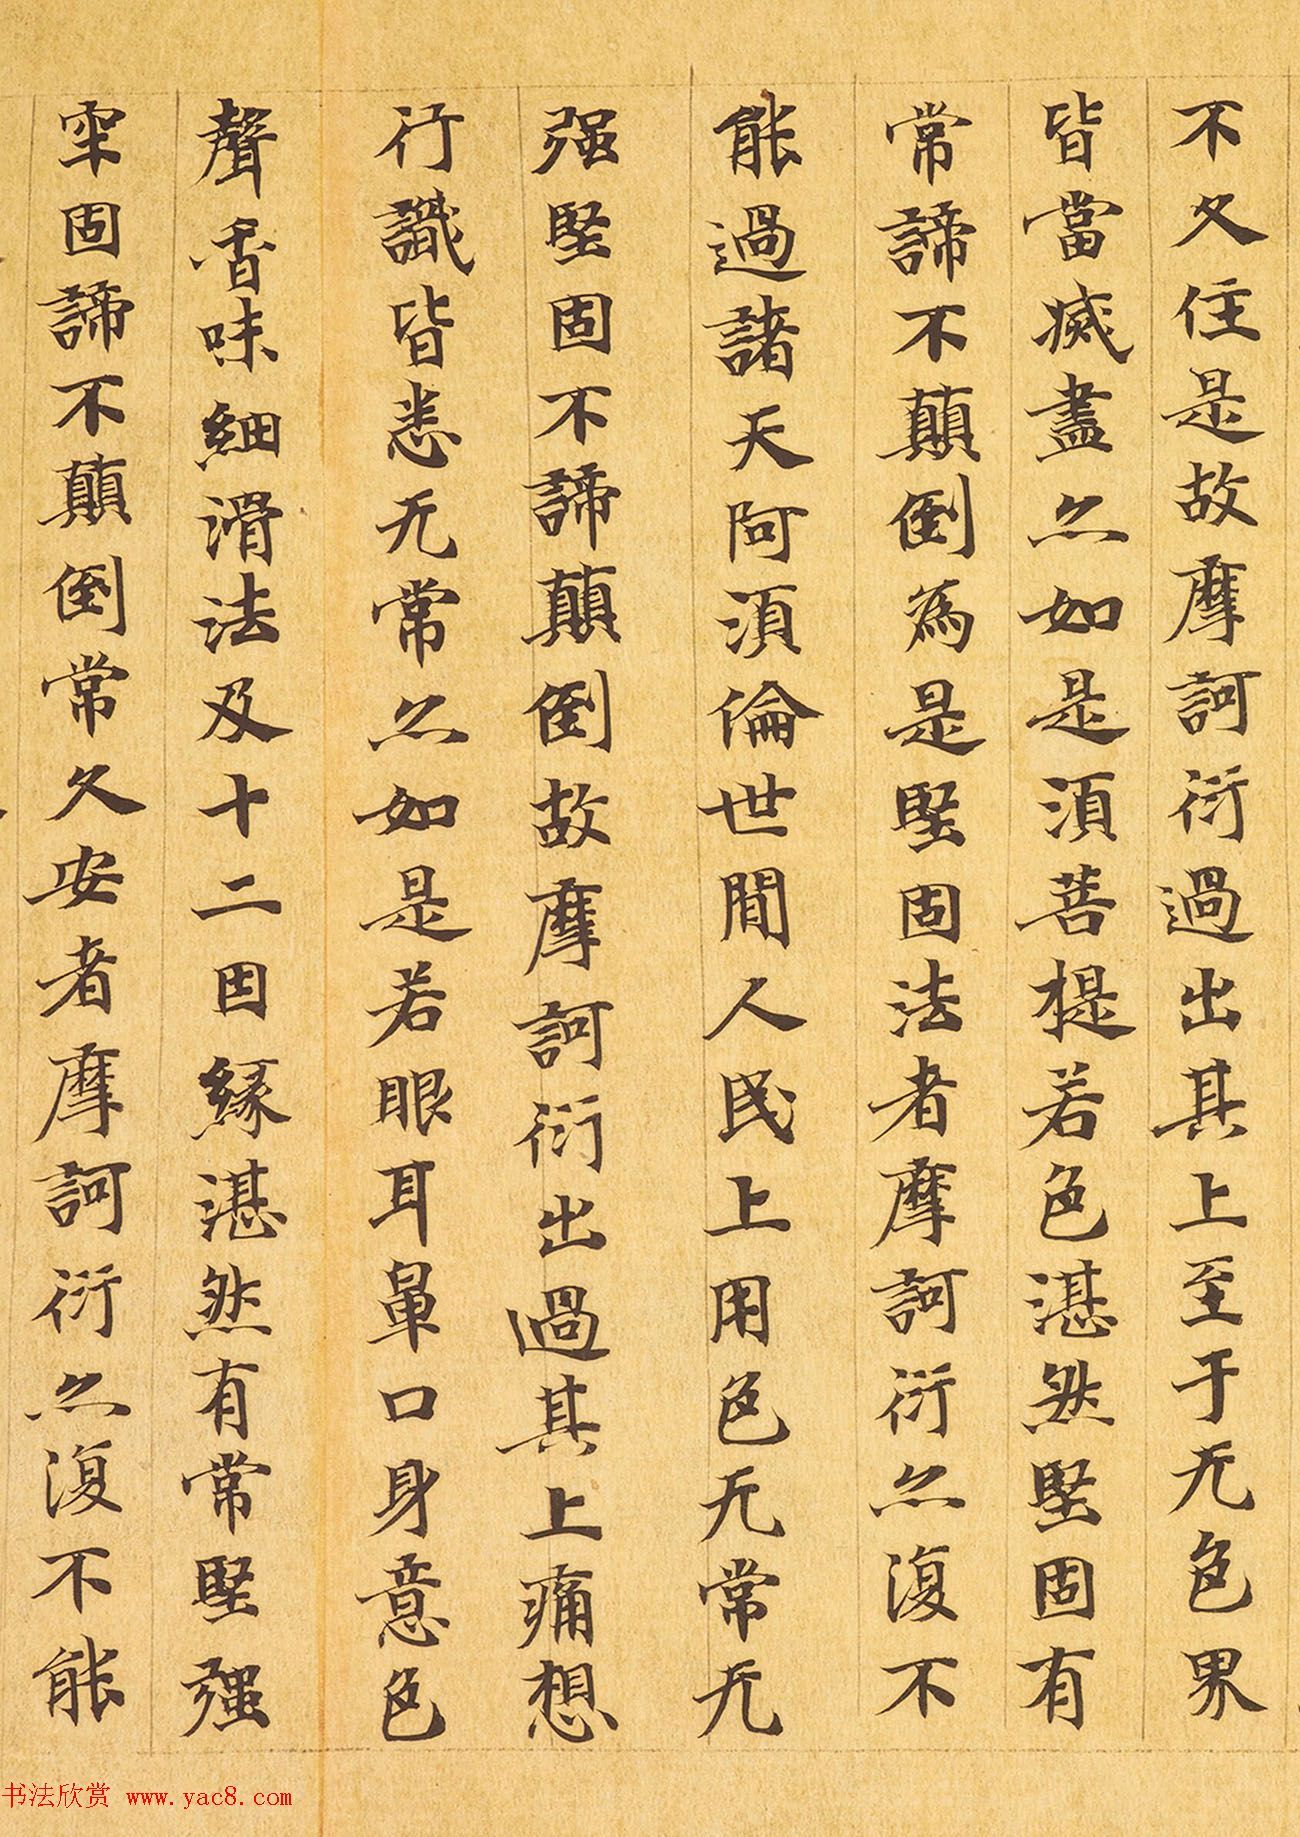 不久住是故摩訶衍過出其上至于无色界
皆當滅盡亦如是須菩提若色湛然堅固有
常諦不顛倒為是堅固法者摩訶衍亦復不
能過諸天阿須倫世間人民上用色无常无
强堅固不諦顛倒故摩訶衍出過其上痛想
行識皆悉无常亦如是若眼耳鼻口身意色
聲香味細滑法及十二因緣湛然有常堅强
牢固諦不顛倒常久安者摩訶衍亦復不能
书法欣赏 www.yac8.com